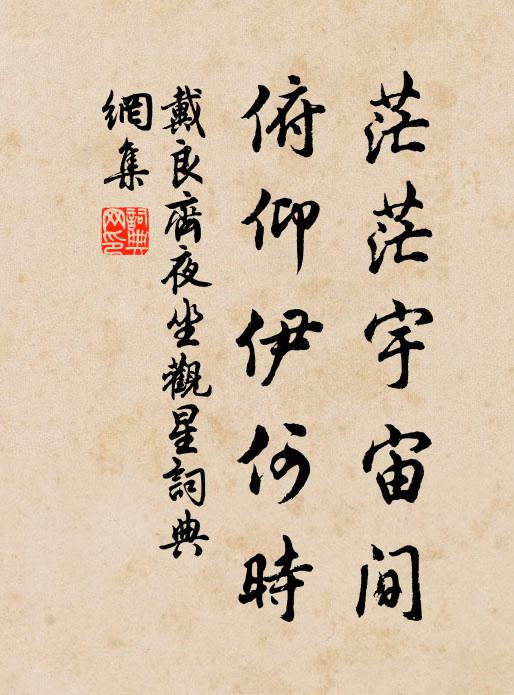 茫茫宇宙间
俯仰伊何時
戴良齊夜坐觀星詞典
網集
詞典
网印